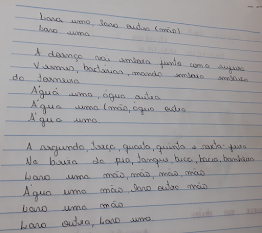 Lava uma, lava outra (mão)
Lava uma
A doença vai embora junto com a sujeira
Vermes, bactérias, mando embora embaixo
da torneira
Água uma, água outra
Água uma (mão), água outra
Água uma
A segunda, terça, quarta, quinta e sexta-feira
Na beira da pia, tanque, bica, bacia, banheira
Lava uma mão, mão, mão, mão
Água uma mão, lava outra mão
Lava uma mão
Lava outra, lava uma